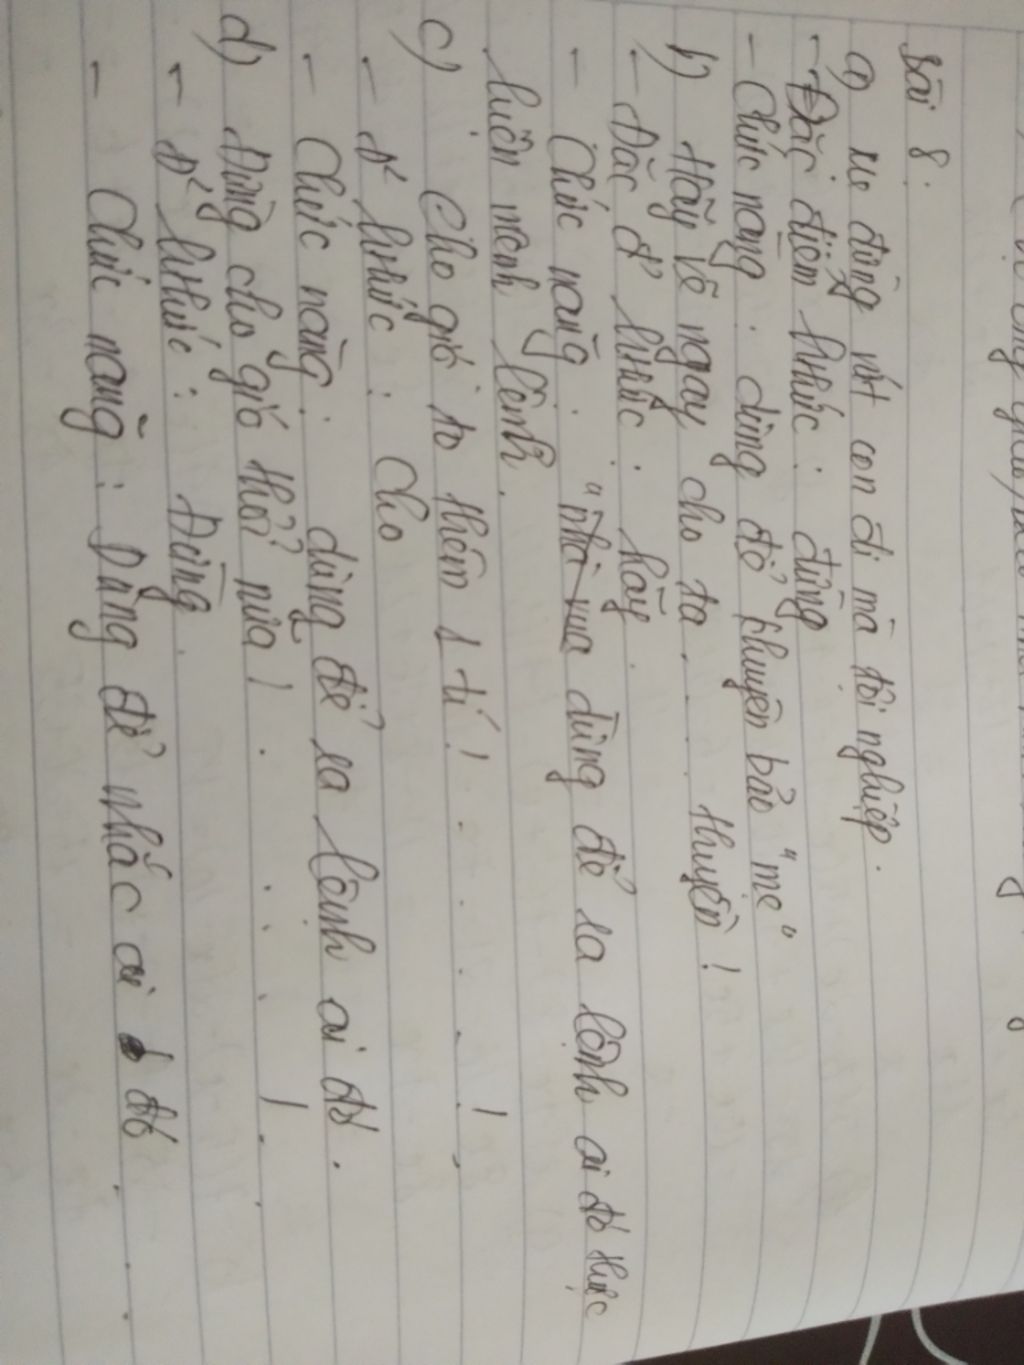 Bài 8.
a) u đừng vứt con đi mà tội nghiệp.
- Đặc điểm hthức : đừng
- Chức năng : dùng để khuyên bảo " mẹ "
b) Hãy vẽ ngay cho ta . . . thuyền !
- Đặc đ' hthức : hãy .
- Chức năng : " dùng để ra lệnh ai đó thực
hiện mệnh lệnh .
c) Cho gió to thêm 1 tí ! . . . !
- đ' hthức : Cho
- Chức năng : dùng để ra lệnh ai đó .
d) Đừng cho gió thổi nữa ! . . . . !
- đ' hthức : Đừng .
- Chức năng : Dùng để nhắc ai đó . . .